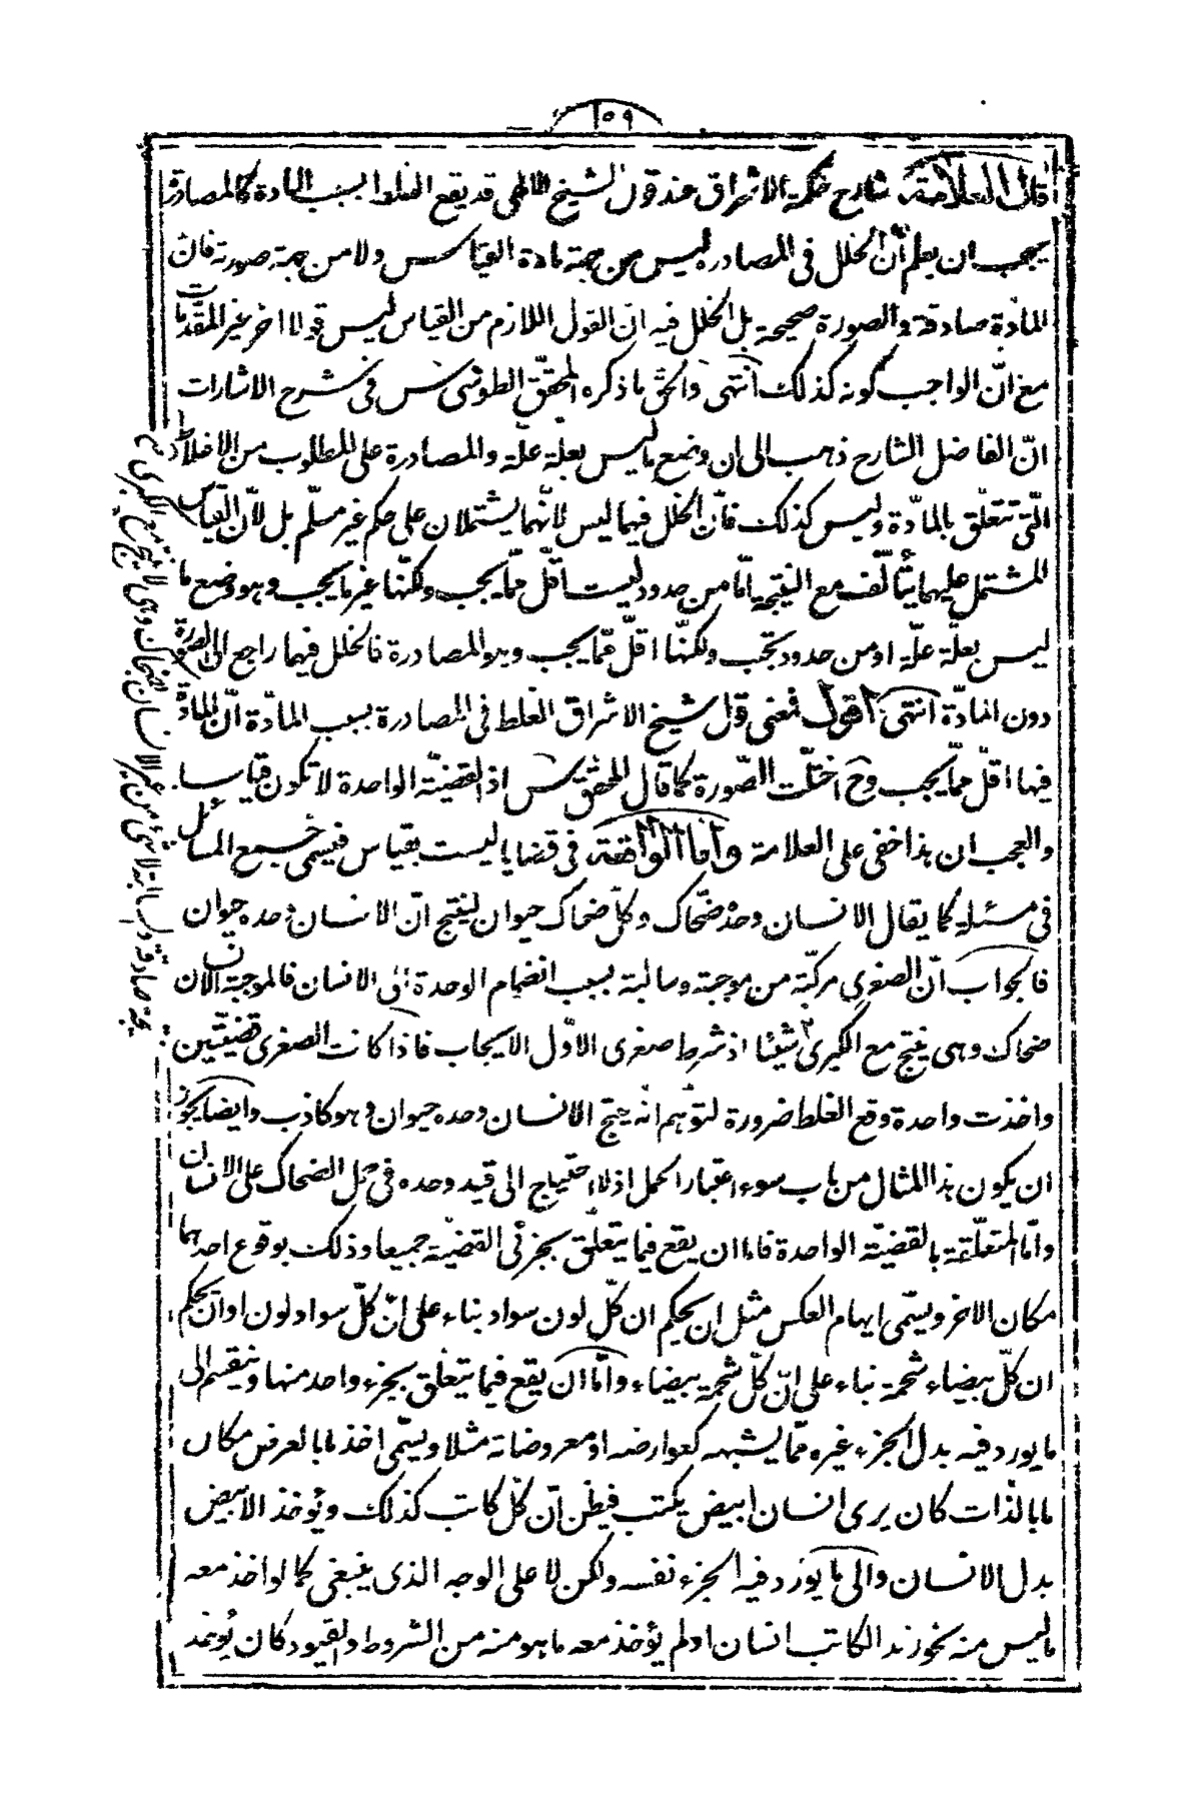 ١٥٩
قال العلامة شارح حكمة الاشراق عند قول الشيخ الالهى قد يقع الغلط بسبب المادة كالمصادرة
يجب ان يعلم أنّ الخلل فى المصادره ليس من جهة مادة القياس ولا من جهة صورته فانّ
المادّة صادقة والصورة صحيحة بل الخلل فيه انّ القول اللازم من القياس ليس قولا اخر غير المقدّمات
مع انّ الواجب كونه كذلك انتهى والحقّ ما ذكره المحقّق الطوسى س فى شرح الاشارات
انّ الفاضل الشارح ذهب الى ان وضع ما ليس بعلة علّة والمصادرة على المطلوب من الاغلاط
الّتى تتعلّق بالمادّة وليس كذلك فانّ الخلل فيهما ليس لانّهما يشتملان على حكم غير مسلّم بل لانّ القياس
المشتمل عليهما يتألّف مع النتيجة امّا من حدود ليست اقلّ ممّا يجب ولكنّها غير ما يجب وهو وضع ما
ليس بعلّة علّة او من حدود تجب ولكنّها اقلّ ممّا يجب وهو المصادرة فالخلل فيهما راجع الى الصورة
دون المادّة انتهى اقول فمعنى قول شيخ الاشراق الغلط فى المصادرة بسبب المادّة انّ المادّة
فيها اقلّ ممّا يجب وح اختلّت الصّورة كما قال المحقق س اذ القضيّة الواحدة لا تكون قياسا
والعجب ان هذا خفى على العلامة وأمّا الواقعة فى قضايا ليست بقياس فيسمى جمع المسائل
فى مسئلة كما يقال الانسان وحده ضحّاك وكلّ ضحاك حيوان لينتج انّ الانسان وحده حيوان
فالجواب انّ الصغرى مركّبة من موجبة وسالبة بسبب انضمام الوحدة الى الانسان فالموجبة الانسان
ضحاك وهى ينتج مع الكبرى شيئا اذ شرط صغرى الاوّل الايجاب فاذا كانت الصغرى قضيّتين
واخذت واحدة وقع الغلط ضرورة لتوّهم انه ينتج الانسان وحده حيوان وهو كاذب وايضا يجوز
ان يكون هذا المثال من باب سوء اعتبار الحمل اذ لا احتياج الى قيد وحده فى حمل الضحاك على الانسان
وامّا المتعلّقة بالقضيّة الواحدة فاما ان يقع فيما يتعلّق بجزئى القضيّة جميعا وذلك بوقوع احدهما
مكان الاخر ويسمّى ايهام العكس مثل ان يحكم ان كلّ لون سواد بناء على انّ كلّ سواد لون او ان يحكم
ان كلّ بيضاء شحمة بناء على انّ كلّ شحمة بيضاء وامّا ان يقع فيما يتعلّق بجزء واحد منها وينقسم الى
ما يورد فيه بدل الجزء غيره ممّا يشبهه كعوارضه او معروضاته مثلا ويسمّى اخذ ما بالعرض مكان
ما بالذات كان يرى انسان ابيض يكتب فيظن انّ كلّ كاتب كذلك ويؤخذ الابيض
بدل الانسان والى ما يورد فيه الجزء نفسه ولكن لا على الوجه الذى ينبغى كما لو اخذ معه
ما ليس منه نحو زيد الكاتب انسان او لم يؤخذ معه ما هو منه من الشروط والقيود كان يؤخذ